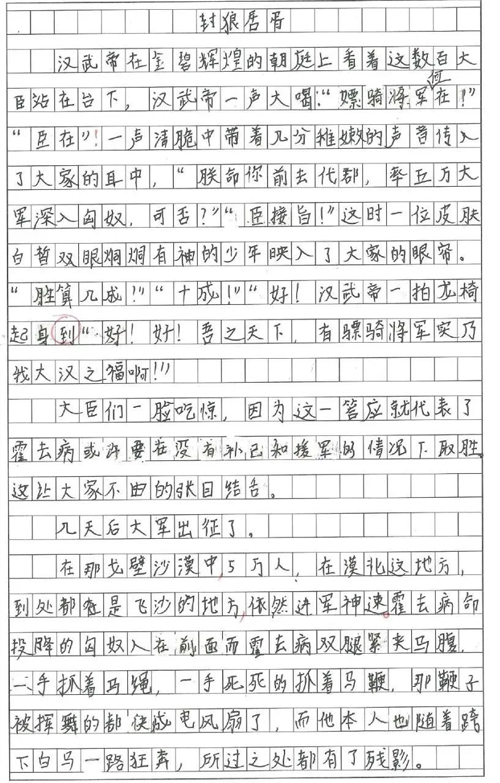 封狼居胥
汉武帝在金碧辉煌的朝挺上看着这数百大
臣站在台下，汉武帝一声大喝：“嫖骑将军何在！”
“臣在”！一声清脆中带着几分稚嫩的声音传入
了大家的耳中，“朕命你前去代郡，率五万大
军深入匈奴，可否？”“臣接旨！”这时一位皮肤
白皙双眼炯炯有神的少年映入了大家的眼帘。
“胜算几成！”“十成！”“好！汉武帝一拍龙椅
起身到“好！好！吾之天下，有骠骑将军实乃
我大汉之福啊！”
大臣们一脸吃惊，因为这一答应就代表了
霍去病或许要在没有补己和援军的情况下取胜，
这让大家不由的张目结舌。
几天后大军出征了。
在那戈壁沙漠中，5万人，在漠北这地方，
到处都是飞沙的地方，依然进军神速。霍去病命
投降的匈奴人在前面而霍去病双腿紧夹马腹，
一手抓着马绳，一手死死的抓着马鞭，那鞭子
被挥舞的都快成电风扇了，而他本人也随着跨
下白马一路狂奔，所过之处都有了残影。